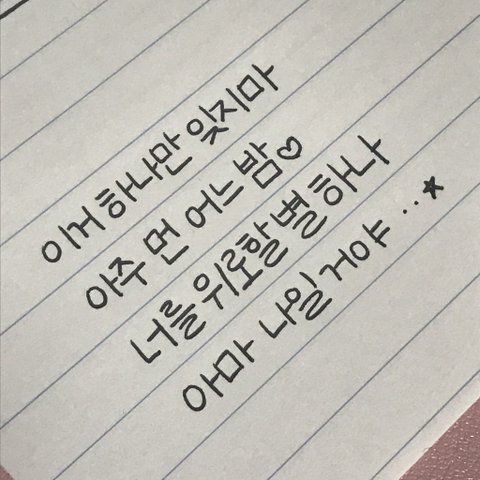 이거 하나만 잊지마
아주 먼 어느 밤♡
너를 위로할 별 하나
아마 나일 거야 ..★